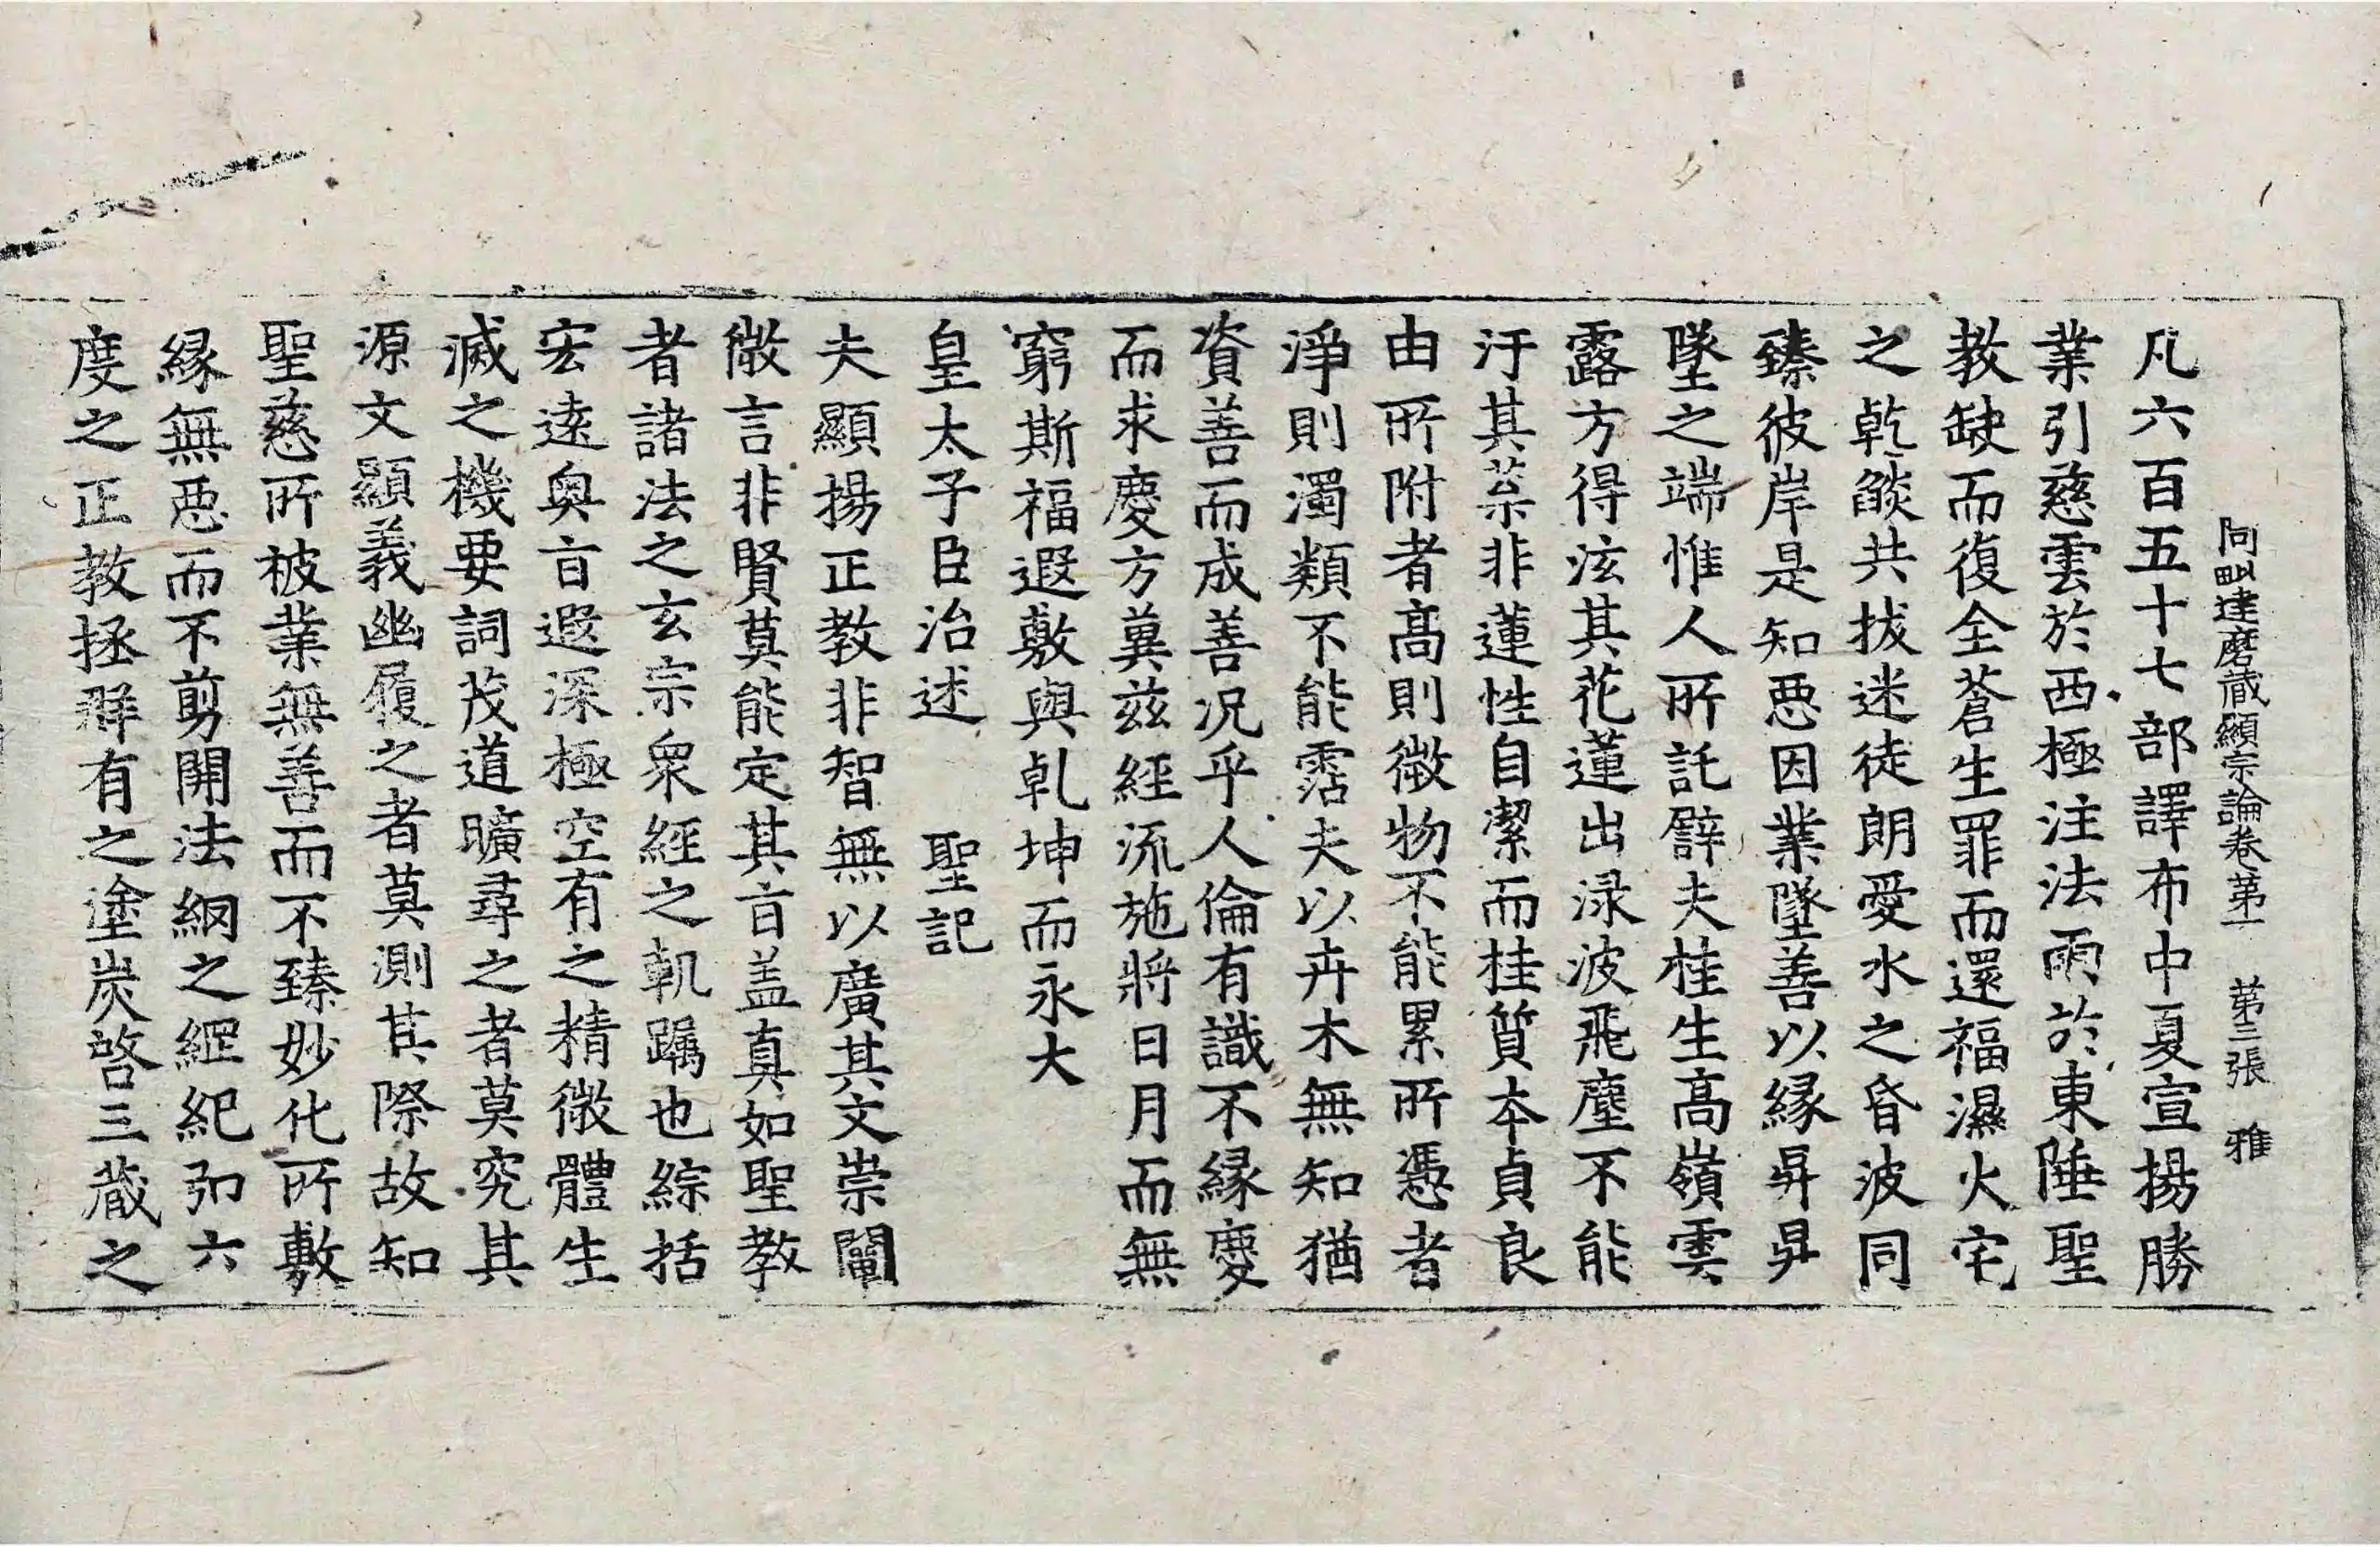 阿毗達磨藏顯宗論卷第一 第三張 雅
凡六百五十七部譯布中夏宣揚勝
業引慈雲於西極注法雨於東陲聖
教缺而復全蒼生罪而還福濕火宅
之乾燄共拔迷徒朗愛水之昏波同
臻彼岸是知惡因業墜善以緣昇昇
墜之端惟人所託譬夫桂生高嶺雲
露方得泫其花蓮出淥波飛塵不能
汙其葉非蓮性自潔而桂質本貞良
由所附者高則微物不能累所憑者
淨則濁類不能霑夫以卉木無知猶
資善而成善況乎人倫有識不緣慶
而求慶方冀茲經流施將日月而無
窮斯福遐敷與乹坤而永大
皇太子臣治述 聖記
夫顯揚正教非智無以廣其文崇闡
微言非賢莫能定其旨盖真如聖教
者諸法之玄宗衆經之軌躅也綜括
宏遠奧旨遐深極空有之精微體生
滅之機要詞茂道曠尋之者莫究其
源文顯義幽履之者莫測其際故知
聖慈所被業無善而不臻妙化所敷
緣無惡而不剪開法網之綱紀弘六
度之正教拯群有之塗炭啓三藏之